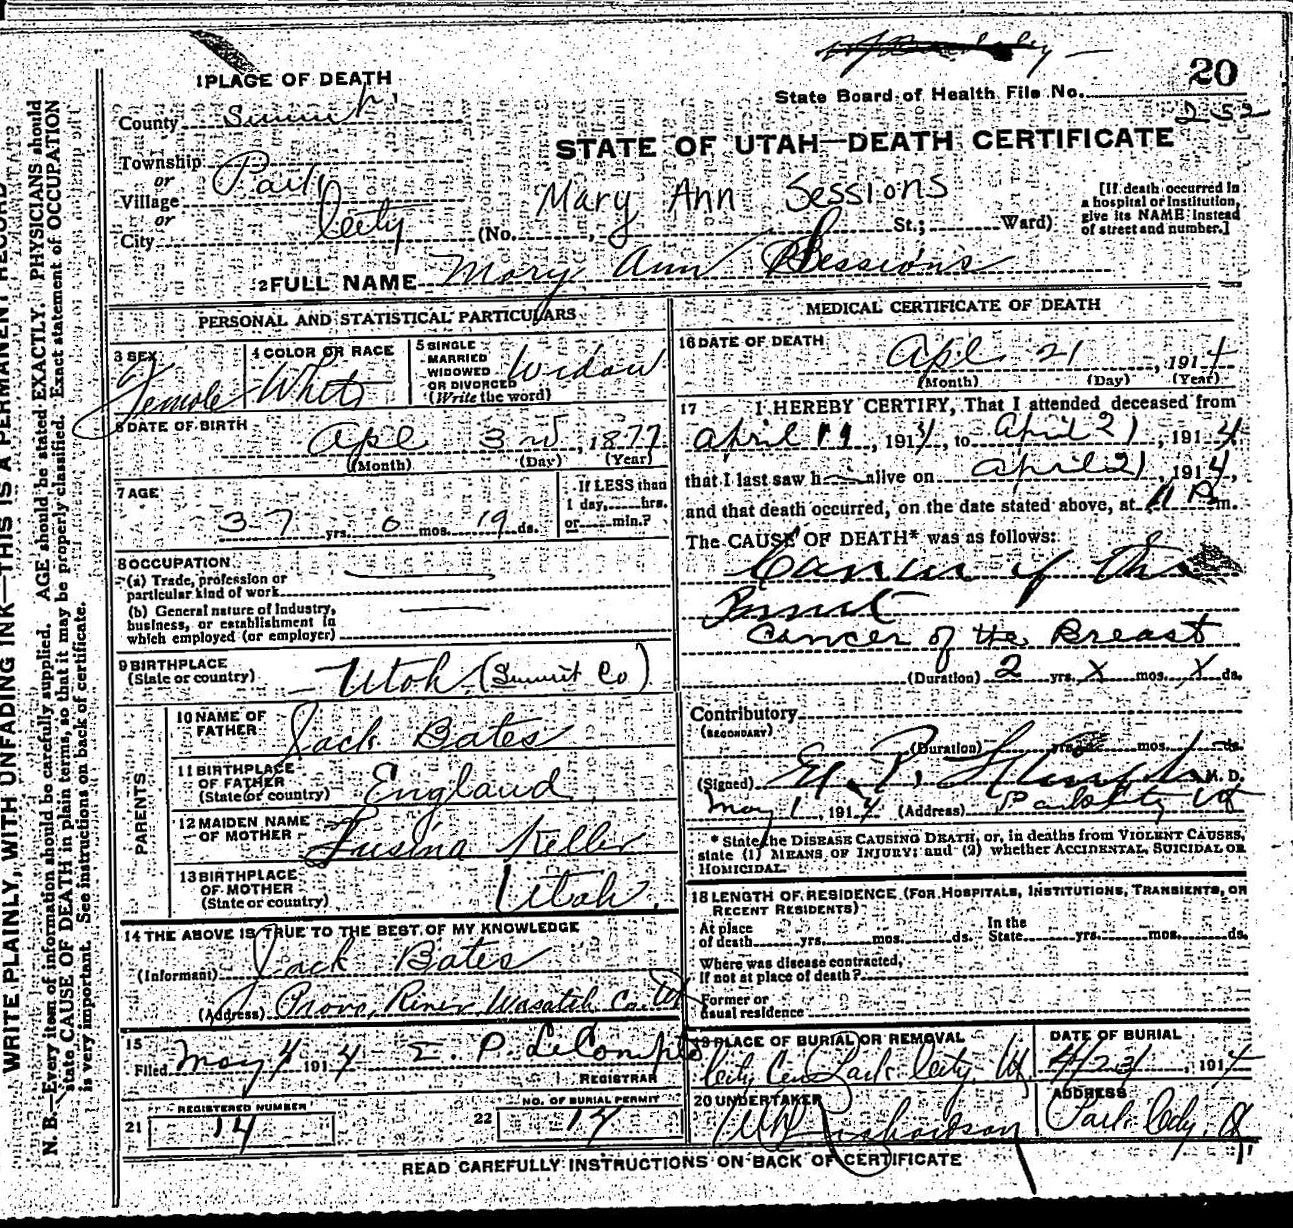 20
State Board of Health File No. 252
1 PLACE OF DEATH
County Summit
STATE OF UTAH—DEATH CERTIFICATE
Township
or
Village Park
or
City City
Mary Ann Sessions
(No. , St.; Ward)
[If death occurred in
a hospital or institution,
give its NAME instead
of street and number.]
2 FULL NAME Mary Ann Sessions
PERSONAL AND STATISTICAL PARTICULARS
3 SEX Female
4 COLOR OR RACE White
5 SINGLE
MARRIED
WIDOWED
OR DIVORCED
(Write the word) Widow
6 DATE OF BIRTH
Apl 3rd, 1877
(Month) (Day) (Year)
7 AGE
37 yrs. 0 mos. 19 ds.
If LESS than
1 day, hrs.
or min.?
8 OCCUPATION
(a) Trade, profession or
particular kind of work
(b) General nature of Industry,
business, or establishment in
which employed (or employer)
9 BIRTHPLACE
(State or country) Utah (Summit Co)
PARENTS
10 NAME OF
FATHER Jack Bates
11 BIRTHPLACE
OF FATHER
(State or country) England
12 MAIDEN NAME
OF MOTHER Lusina Keller
13 BIRTHPLACE
OF MOTHER
(State or country) Utah.
14 THE ABOVE IS TRUE TO THE BEST OF MY KNOWLEDGE
(Informant) Jack Bates
(Address) Provo, River, Wasatch Co. Ut
15
Filed May 4 1914 E. P. LeCompte
REGISTRAR
21 REGISTERED NUMBER 14
22 NO. OF BURIAL PERMIT 14
MEDICAL CERTIFICATE OF DEATH
16 DATE OF DEATH
Apl 21, 1914
(Month) (Day) (Year)
17 I HEREBY CERTIFY, That I attended deceased from
April 19, 1914, to April 21, 1914
that I last saw h alive on April 21, 1914,
and that death occurred, on the date stated above, at 11 P m.
The CAUSE OF DEATH* was as follows:
Cancer of the
Breast
Cancer of the Breast
(Duration) 2 yrs. X mos. X ds.
Contributory
(SECONDARY)
(Duration) yrs. mos. ds.
(Signed) M. D.
May 1, 1914 (Address) Park City Ut
* State the DISEASE CAUSING DEATH, or, in deaths from VIOLENT CAUSES,
state (1) MEANS OF INJURY; and (2) whether ACCIDENTAL, SUICIDAL OR
HOMICIDAL.
18 LENGTH OF RESIDENCE (FOR HOSPITALS, INSTITUTIONS, TRANSIENTS, OR
RECENT RESIDENTS)
At place
of death yrs. mos. ds.
In the
State yrs. mos. ds.
Where was disease contracted,
If not at place of death?
Former or
usual residence
19 PLACE OF BURIAL OR REMOVAL
City Cem Park City, Ut
DATE OF BURIAL
4/23, 1914
20 UNDERTAKER
ADDRESS
Park City, Ut
READ CAREFULLY INSTRUCTIONS ON BACK OF CERTIFICATE
WRITE PLAINLY, WITH UNFADING INK—THIS IS A PERMANENT RECORD
N. B.—Every item of information should be carefully supplied. AGE should be stated EXACTLY. PHYSICIANS should
state CAUSE OF DEATH in plain terms, so that it may be properly classified. Exact statement of OCCUPATION
is very important. See instructions on back of certificate.